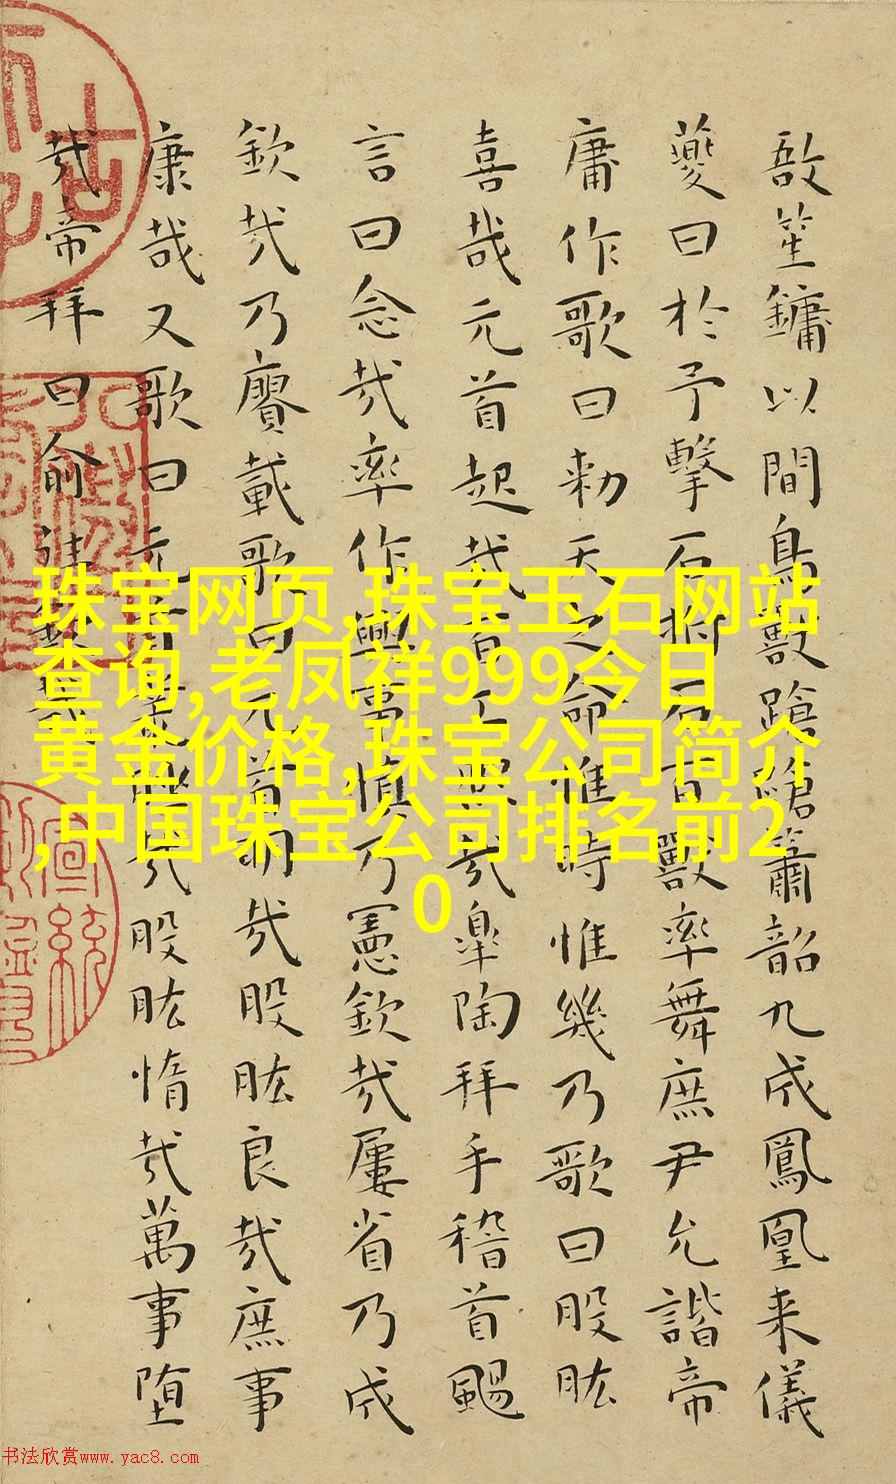 敔笙鏞以間鳥獸蹌蹌簫韶九成鳳凰来儀
夔曰於予擊石拊石百獸率舞庶尹允諧帝
庸作歌曰勑天之命惟時惟幾乃歌曰股肱
喜哉元首起哉百工熙哉皐陶拜手稽首颺
言曰念哉率作興事慎乃憲欽哉屢省乃成
欽哉乃賡載歌曰元首明哉股肱良哉庶事
康哉又歌曰元首叢脞哉股肱惰哉萬事堕
哉帝拜曰俞往欽哉
珠宝网页,珠宝玉石网站
查询,老凤祥999今日
黄金价格,珠宝公司简介
,中国珠宝公司排名前2
0
书法欣赏www.yac8.com